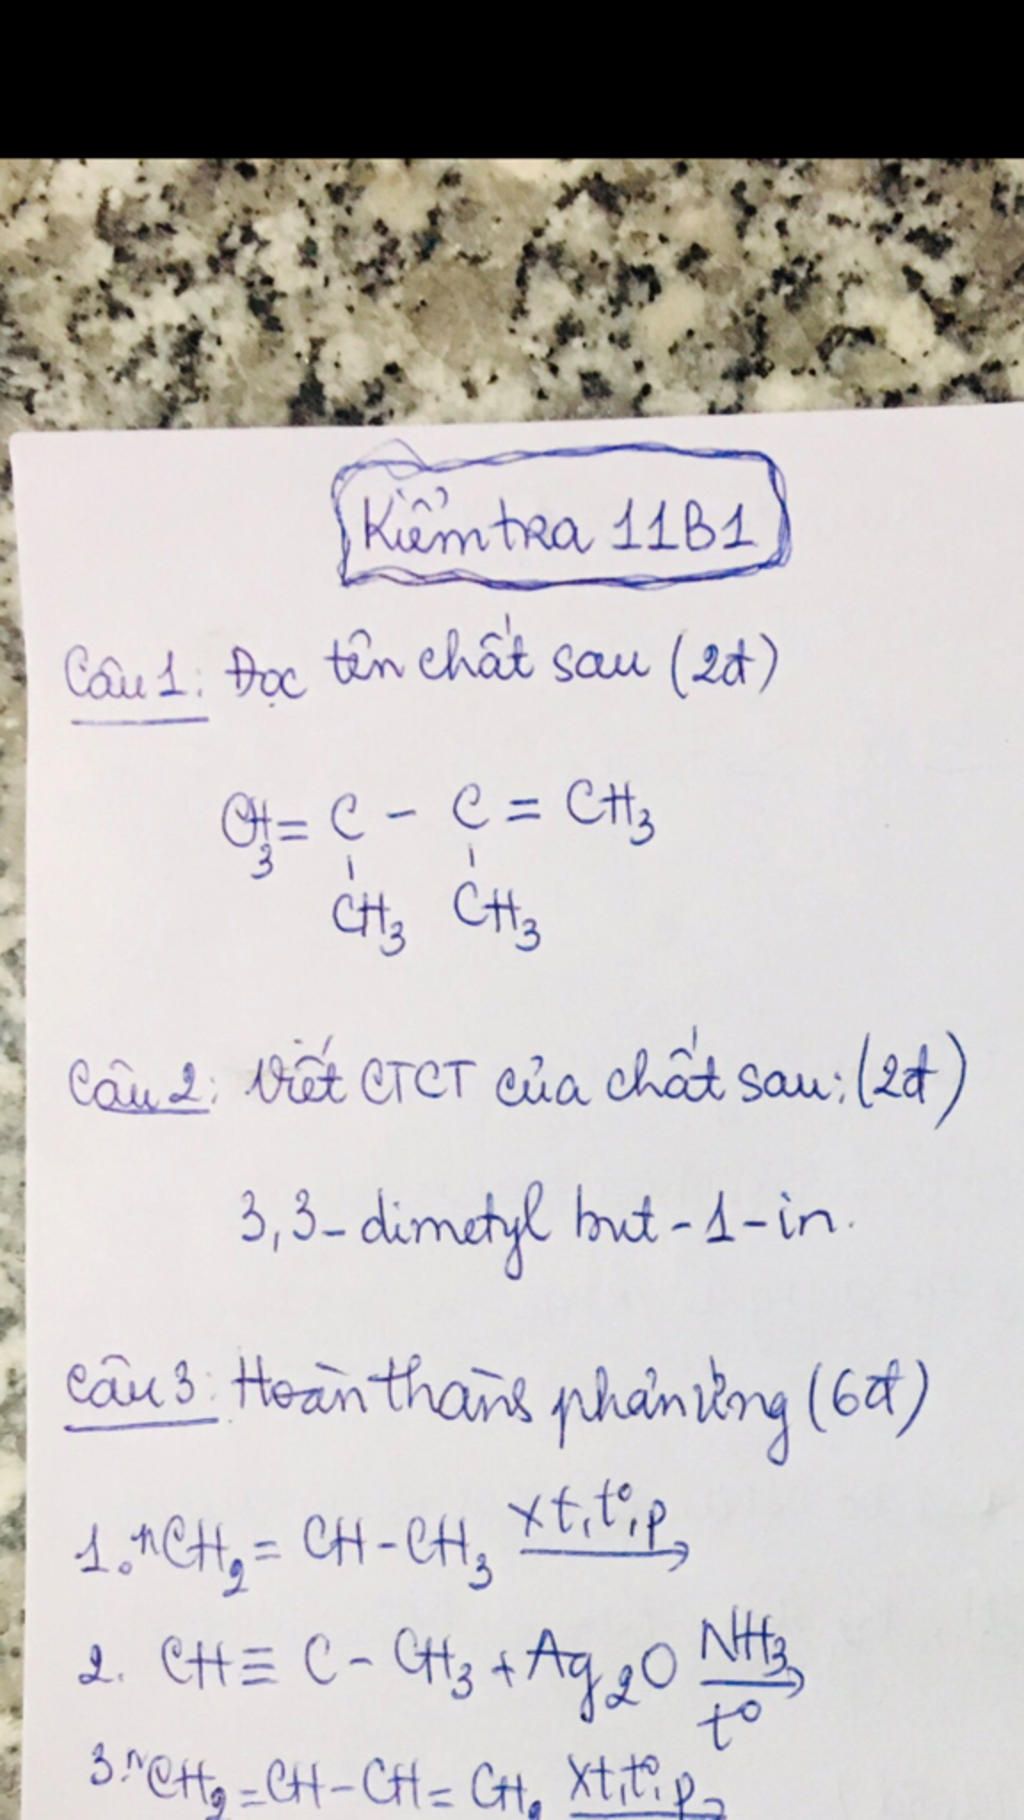 Kiểm tra 11B1
Câu 1: Đọc tên chất sau (2đ)
CH3 = C - C = CH3
CH3 CH3
Câu 2: Viết CTCT của chất sau: (2đ)
3,3-dimetyl but-1-in.
Câu 3: Hoàn thành phản ứng (6đ)
1. nCH2 = CH-CH3 xt, t°, p →
2. CH≡C-CH3 + Ag2O NH3 → t°
3. nCH2=CH-CH=CH2 xt, t°, p →